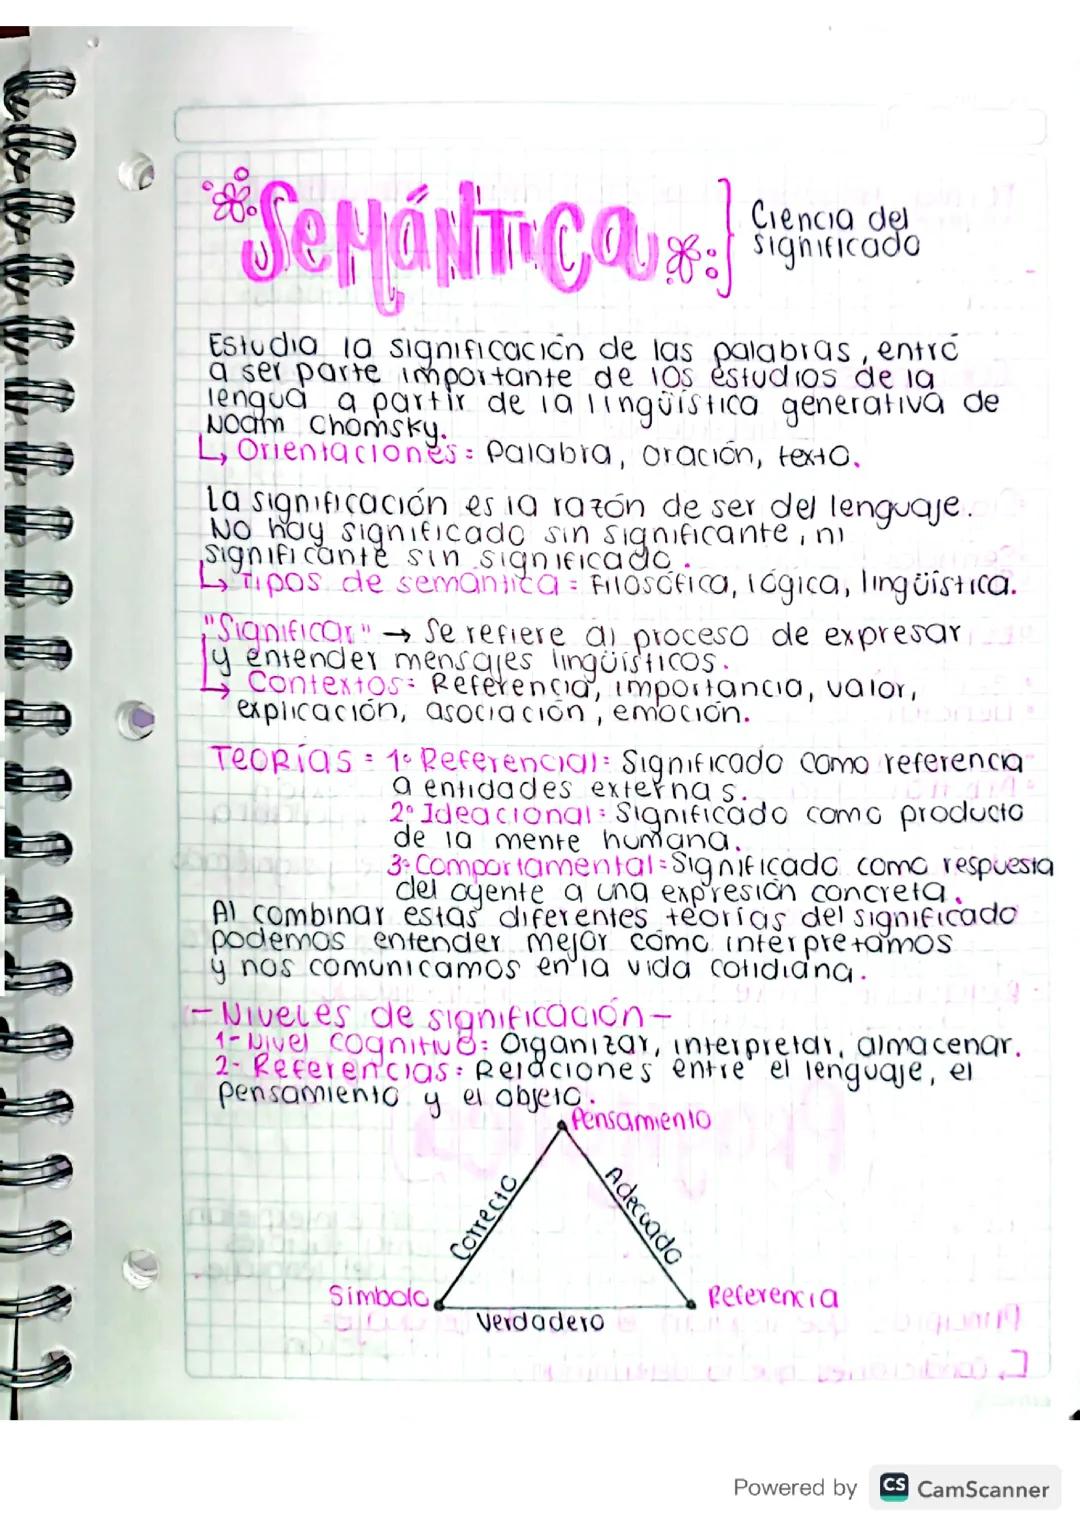 Semántica } Ciencia del
significado
Estudia la significación de las palabras, entró
a ser parte importante de los estudios de la
lengua a partir de la lingüística generativa de
Noam Chomsky.
↳ Orientaciones: Palabra, oración, texto.
La significación es la razón de ser del lenguaje.
No hay significado sin significante, ni
significante sin significado.
↳ Tipos de semántica: Filosófica, lógica, lingüística.
"Significar" → Se refiere al proceso de expresar
y entender mensajes lingüísticos.
↳ Contextos: Referencia, importancia, valor,
explicación, asociación, emoción.
Teorías: 1° Referencial: Significado como referencia
a entidades externas.
2° Ideacional: Significado como producto
de la mente humana.
3° Comportamental: Significado como respuesta
del oyente a una expresión concreta.
Al combinar estas diferentes teorías del significado
podemos entender mejor cómo interpretamos
y nos comunicamos en la vida cotidiana.
- Niveles de significación -
1- Nivel cognitivo: Organizar, interpretar, almacenar.
2- Referencias: Relaciones entre el lenguaje, el
pensamiento y el objeto.
Pensamiento
Correcto
Adecuado
Símbolo
Referencia
Verdadero
Powered by CS CamScanner